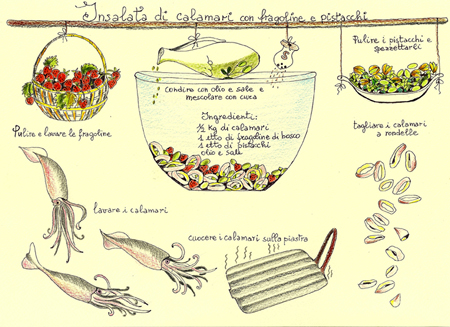 Insalata di calamari con fragoline e pistacchi
Pulire i pistacchi e
spezzettarli
Condire con olio e sale e
mescolare con cura
Ingredienti:
½ kg di calamari
1 etto di fragoline di bosco
1 etto di pistacchi
olio e sale
Pulire e lavare le fragoline
tagliare i calamari
a rondelle
lavare i calamari
cuocere i calamari sulla piastra